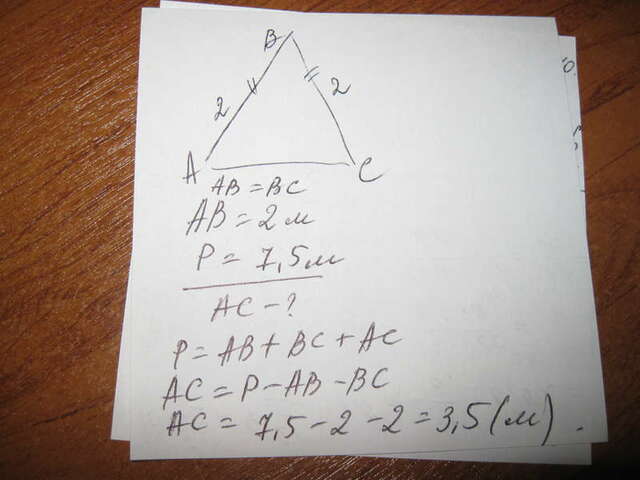 B
2 2
A C
AB = BC
AB = 2 м
P = 7,5 м
AC - ?
P = AB + BC + AC
AC = P - AB - BC
AC = 7,5 - 2 - 2 = 3,5 (м).